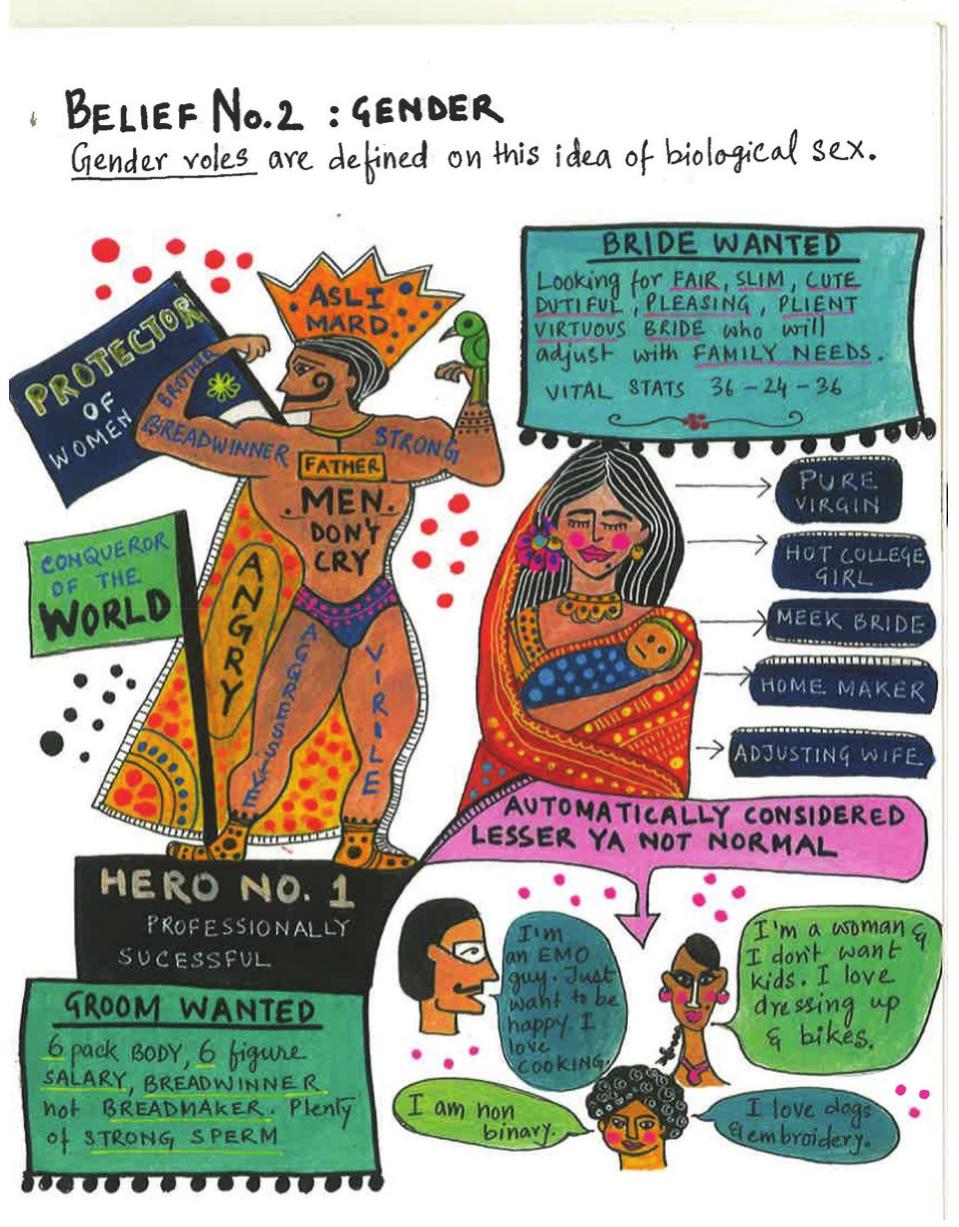 BELIEF No.2 : GENDER
Gender roles are defined on this idea of biological sex.
PROTECTOR
OF
WOMEN
ASLI
MARD
BROTHER
BREADWINNER
STRONG
FATHER
MEN
DON'T
CRY
CONQUEROR
OF THE
WORLD
ANGRY
AGGRESSIVE
VIRILE
HERO NO. 1
PROFESSIONALLY
SUCESSFUL
GROOM WANTED
6 pack BODY, 6 figure
SALARY, BREADWINNER
not BREADMAKER. Plenty
of STRONG SPERM
BRIDE WANTED
Looking for FAIR, SLIM, CUTE
DUTIFUL, PLEASING, PLIENT
VIRTUOUS BRIDE who will
adjust with FAMILY NEEDS.
VITAL STATS 36-24-36
PURE
VIRGIN
HOT COLLEGE
GIRL
MEEK BRIDE
HOME MAKER
ADJUSTING WIFE
AUTOMATICALLY CONSIDERED
LESSER YA NOT NORMAL
I'm
an EMO
guy. Just
want to be
happy. I
love
COOKING.
I'm a woman &
I don't want
kids. I love
dressing up
& bikes.
I am non
binary.
I love dogs
& embroidery.